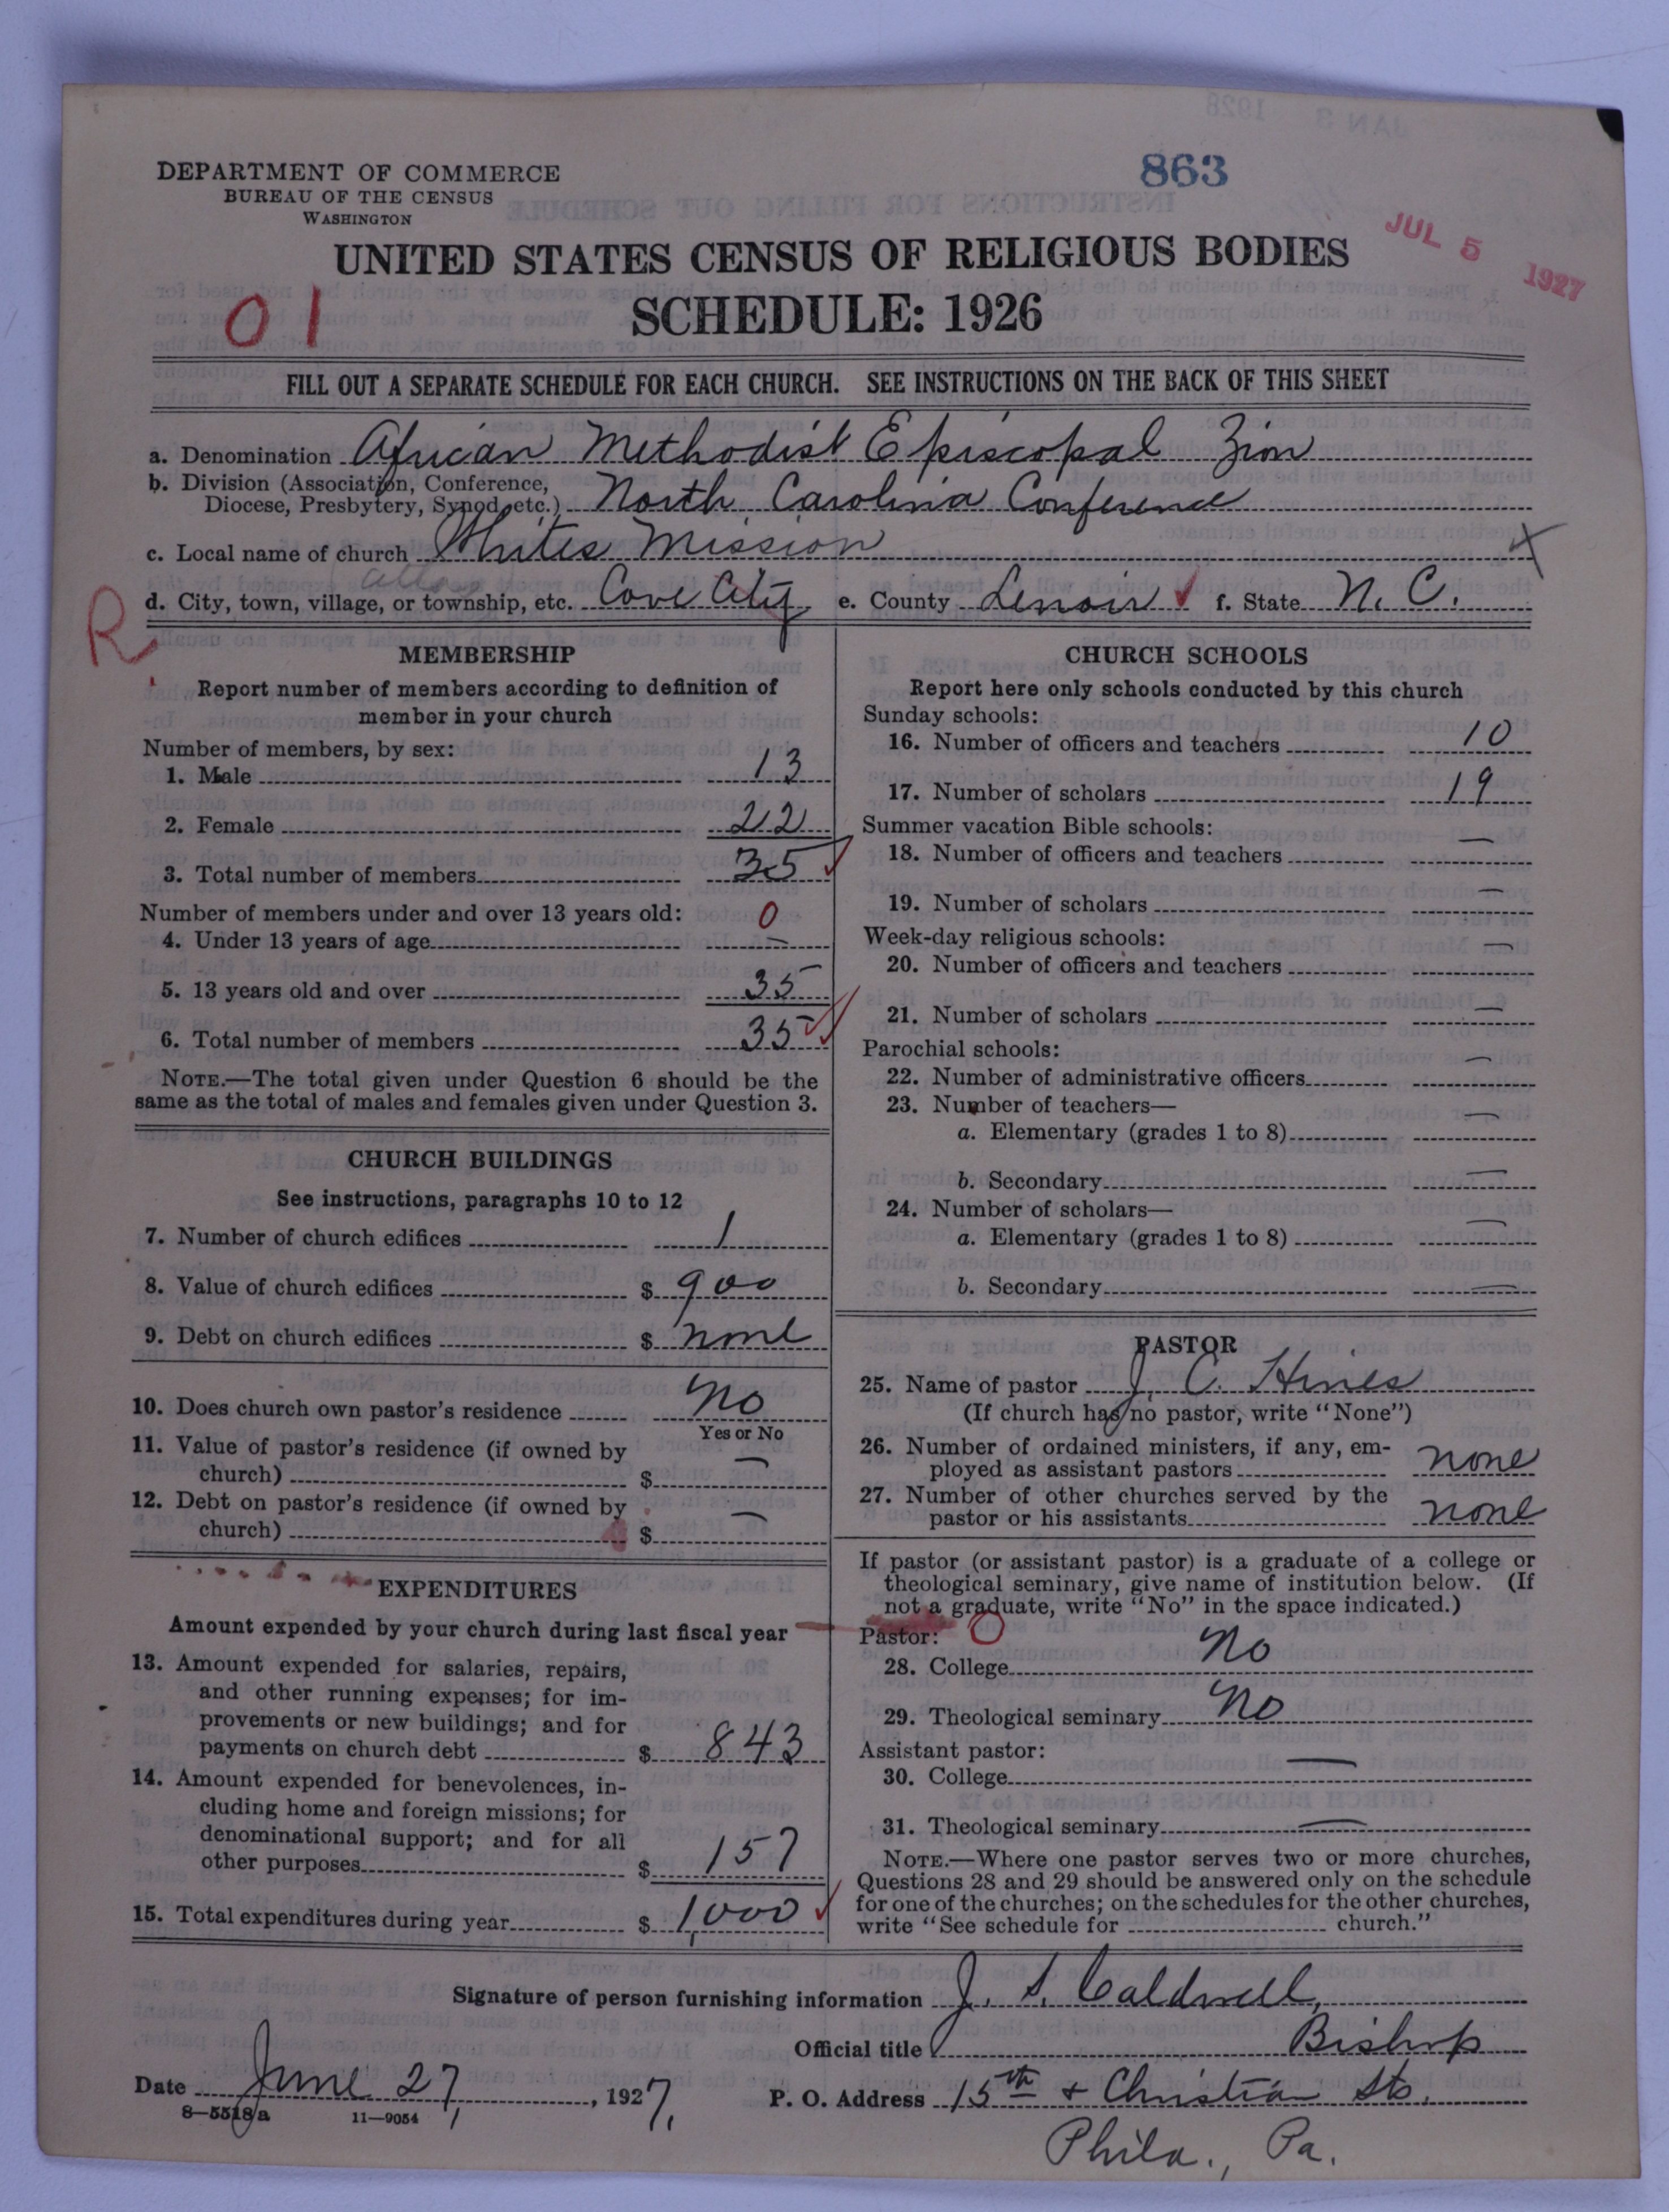 863
DEPARTMENT OF COMMERCE
BUREAU OF THE CENSUS
WASHINGTON
JUL 5 1927
UNITED STATES CENSUS OF RELIGIOUS BODIES
SCHEDULE: 1926
01
FILL OUT A SEPARATE SCHEDULE FOR EACH CHURCH. SEE INSTRUCTIONS ON THE BACK OF THIS SHEET
a. Denomination African Methodist Episcopal Zion
b. Division (Association, Conference,
Diocese, Presbytery, Synod, etc.) North Carolina Conference
c. Local name of church Whites Mission
R
d. City, town, village, or township, etc. Cove City e. County Lenoir ✓ f. State N. C.
MEMBERSHIP
Report number of members according to definition of
member in your church
Number of members, by sex:
1. Male 13
2. Female 22
3. Total number of members 35 ✓
Number of members under and over 13 years old: 0
4. Under 13 years of age —
5. 13 years old and over 35
6. Total number of members 35 ✓
NOTE.—The total given under Question 6 should be the
same as the total of males and females given under Question 3.
CHURCH BUILDINGS
See instructions, paragraphs 10 to 12
7. Number of church edifices 1
8. Value of church edifices $ 900
9. Debt on church edifices $ none
10. Does church own pastor's residence No
Yes or No
11. Value of pastor's residence (if owned by
church) $ —
12. Debt on pastor's residence (if owned by
church) $ —
EXPENDITURES
Amount expended by your church during last fiscal year
13. Amount expended for salaries, repairs,
and other running expenses; for im-
provements or new buildings; and for
payments on church debt $ 843
14. Amount expended for benevolences, in-
cluding home and foreign missions; for
denominational support; and for all
other purposes $ 157
15. Total expenditures during year $ 1,000 ✓
CHURCH SCHOOLS
Report here only schools conducted by this church
Sunday schools:
16. Number of officers and teachers 10
17. Number of scholars 19
Summer vacation Bible schools:
18. Number of officers and teachers —
19. Number of scholars —
Week-day religious schools:
20. Number of officers and teachers —
21. Number of scholars —
Parochial schools:
22. Number of administrative officers —
23. Number of teachers—
a. Elementary (grades 1 to 8) —
b. Secondary —
24. Number of scholars—
a. Elementary (grades 1 to 8) —
b. Secondary —
PASTOR
25. Name of pastor J. C. Hines
(If church has no pastor, write "None")
26. Number of ordained ministers, if any, em-
ployed as assistant pastors none
27. Number of other churches served by the
pastor or his assistants none
If pastor (or assistant pastor) is a graduate of a college or
theological seminary, give name of institution below. (If
not a graduate, write "No" in the space indicated.)
Pastor: 0
28. College No
29. Theological seminary No
Assistant pastor:
30. College —
31. Theological seminary —
NOTE.—Where one pastor serves two or more churches,
Questions 28 and 29 should be answered only on the schedule
for one of the churches; on the schedules for the other churches,
write "See schedule for church."
Signature of person furnishing information J. S. Caldwell,
Official title Bishop
Date June 27, 1927.
P. O. Address 15th & Christian Sts.
Phila., Pa.
8—5518a 11—9054